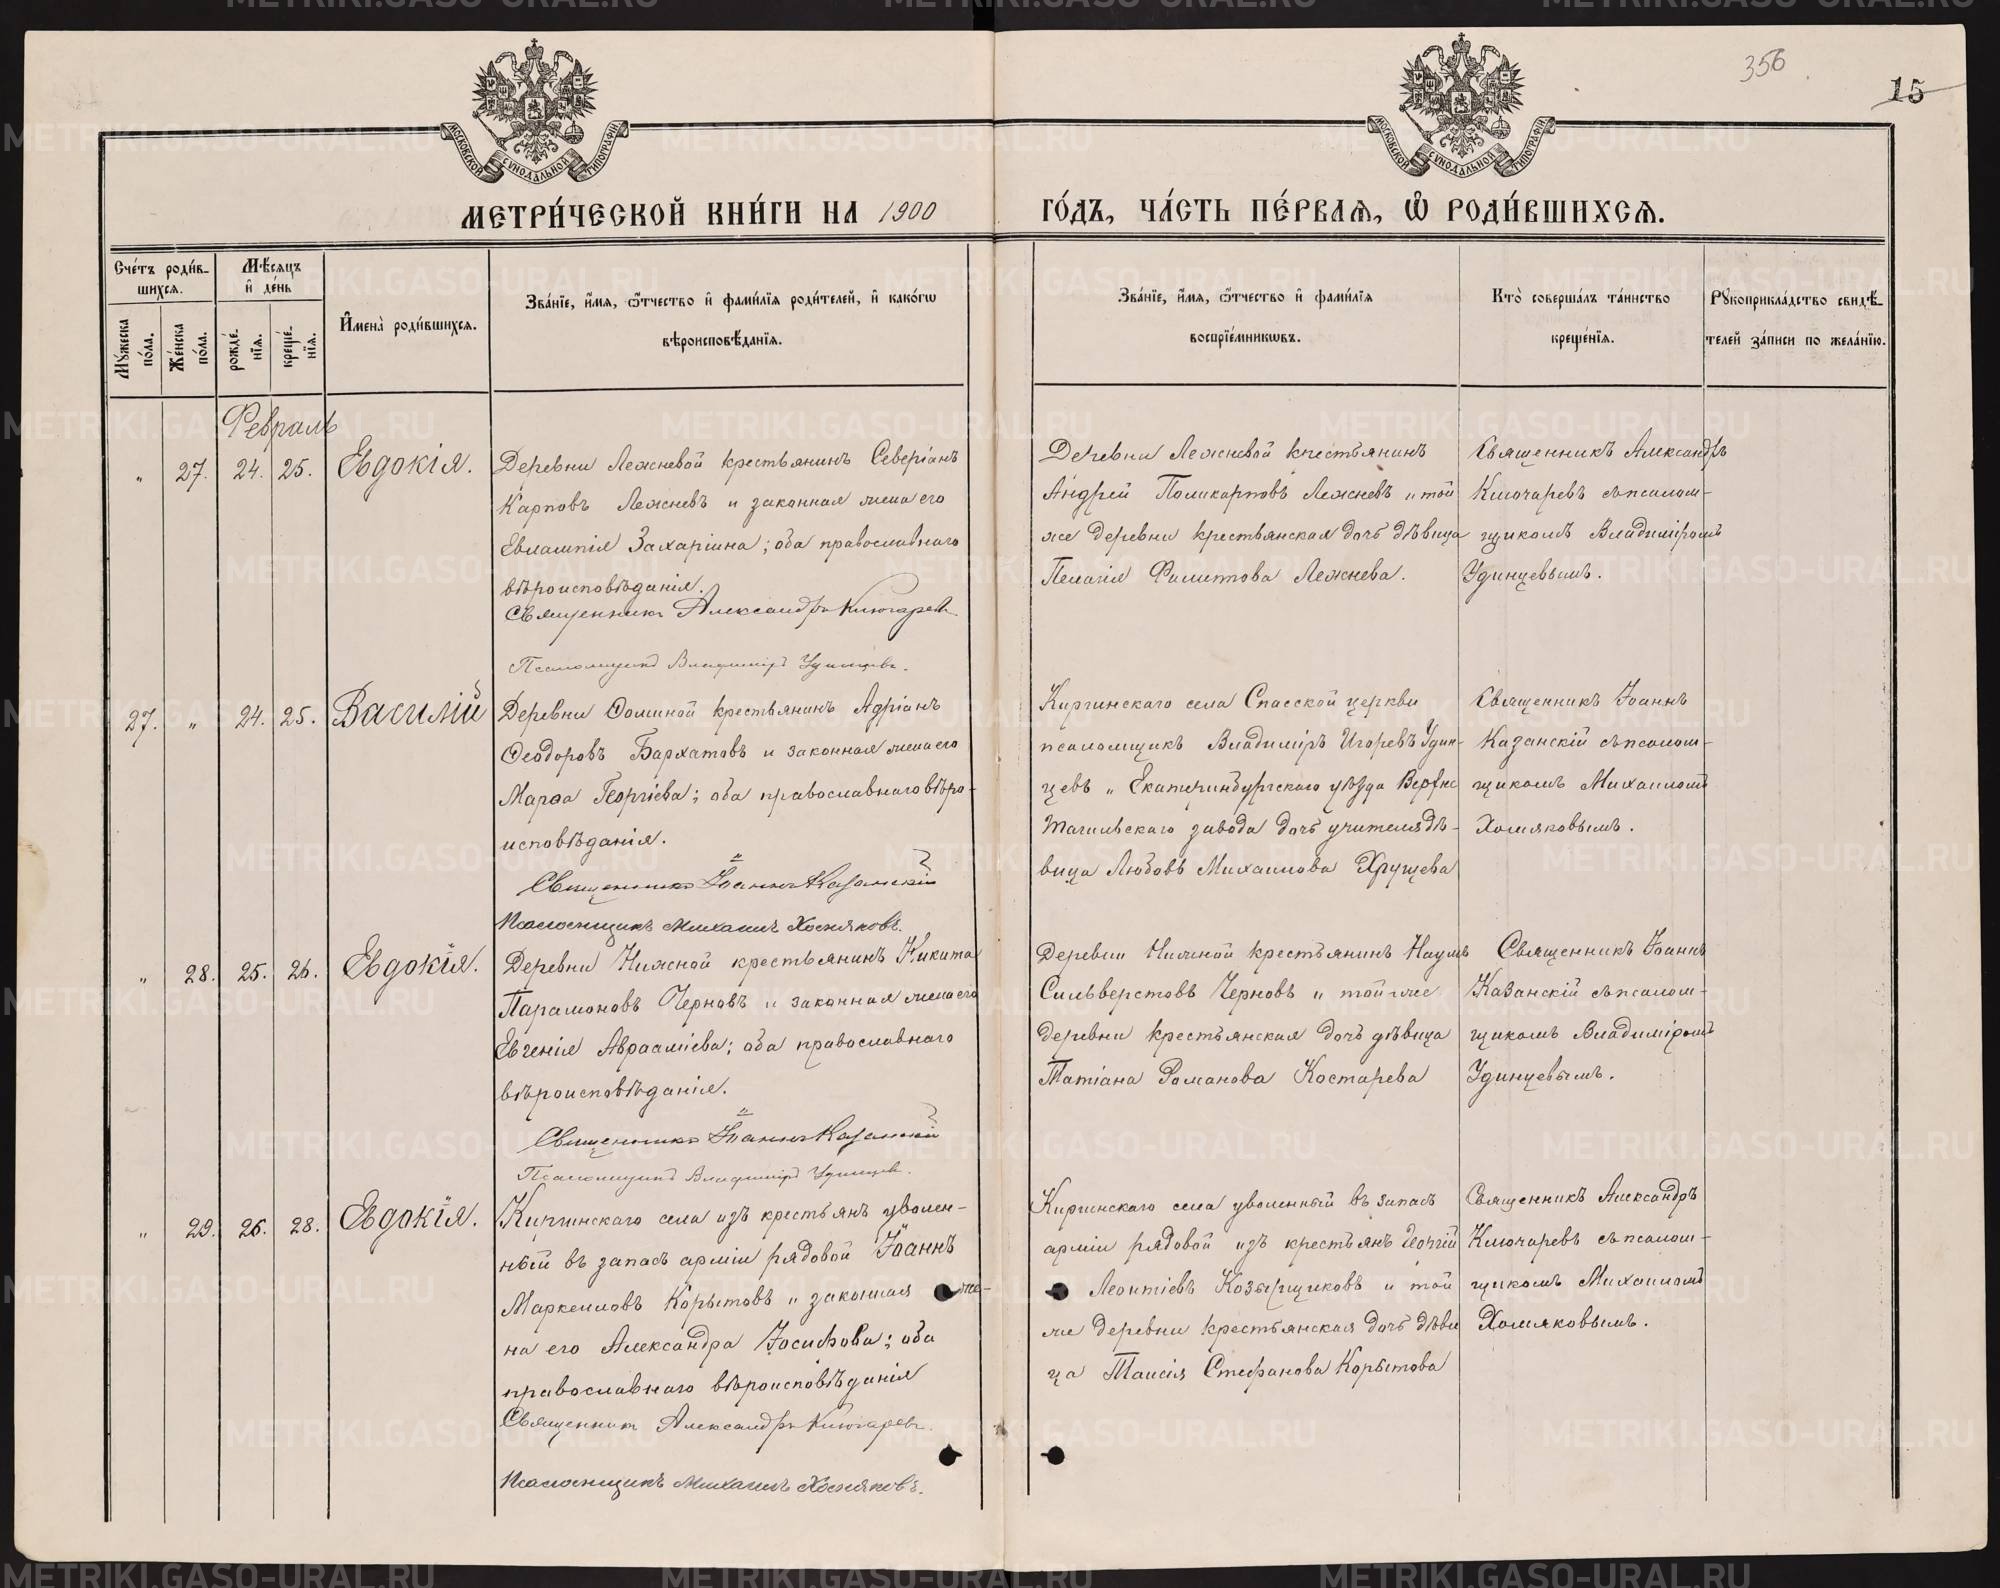 356
15
МОСКОВСКОЙ СУНОДАЛЬНОЙ ТИПОГРАФІИ
МОСКОВСКОЙ СУНОДАЛЬНОЙ ТИПОГРАФІИ
МЕТРИ́ЧЕСКОЙ КНИ́ГИ НА 1900 ГО́ДЪ, ЧА́СТЬ ПЕ́РВАѦ, Ѡ҆ РОДИ́ВШИХСѦ.
Сче́тъ роди́в-
шихсѧ.
Мѣ́сѧцъ
и҆ де́нь
Мꙋ́жеска
по́ла.
Же́нска
по́ла.
рожде́-
нїѧ.
креще́-
нїѧ.
И҆мена̀ роди́вшихсѧ.
Зва́нїе, и҆́мѧ, ѻ҆́тчество и҆ фами́лїѧ роди́телей, и҆ како́гѡ
вѣроисповѣ́данїѧ.
Зва́нїе, и҆́мѧ, ѻ҆́тчество и҆ фами́лїѧ
воспрїе́мникѡвъ.
Кто̀ соверша́лъ та́инство
креще́нїѧ.
Рꙋкоприкла́дство свидѣ́-
телей за́писи по жела́нїю.
Февраль
" 27. 24. 25. Евдокія.
Деревни Лежневой крестьянинъ Северіанъ
Карповъ Лежневъ и законная жена его
Евлампія Захаріина; оба православнаго
вѣроисповѣданія.
Священникъ Александръ Ключаревъ
Псаломщикъ Владиміръ Удинцевъ.
Деревни Лежневой крестьянинъ
Андрей Поликарповъ Лежневъ и той
же деревни крестьянская дочь дѣвица
Пелагія Филиппова Лежнева.
Священникъ Александръ
Ключаревъ съ псалом-
щикомъ Владиміромъ
Удинцевымъ.
27. " 24. 25. Василій
Деревни Ѳоминой крестьянинъ Адріанъ
Ѳеодоровъ Бархатовъ и законная жена его
Марѳа Георгіева; оба православнаго вѣро-
исповѣданія.
Священникъ Іоаннъ Казанскій
Псаломщикъ Михаилъ Хомяковъ.
Киргинскаго села Спасской церкви
псаломщикъ Владиміръ Игоревъ Удин-
цевъ и Екатеринбургскаго уѣзда Верхне
Тагильскаго завода дочь учителя дѣ-
вица Любовь Михаилова Хрущева
Священникъ Іоаннъ
Казанскій съ псалом-
щикомъ Михаиломъ
Хомяковымъ.
" 28. 25. 26. Евдокія.
Деревни Нижной крестьянинъ Никита
Парамоновъ Черновъ и законная жена его
Евгенія Авраамиева; оба православнаго
вѣроисповѣданія.
Священникъ Іоаннъ Казанскій
Псаломщикъ Владиміръ Удинцевъ.
Деревни Нижной крестьянинъ Наумъ
Сильверстовъ Черновъ и той же
деревни крестьянская дочь дѣвица
Татіана Романова Костарева
Священникъ Іоаннъ
Казанскій съ псалом-
щикомъ Владиміромъ
Удинцевымъ.
" 29. 26. 28. Евдокія.
Киргинскаго села изъ крестьянъ уволен-
ный въ запасъ арміи рядовой Іоаннъ
Маркелловъ Корытовъ и законная же-
на его Александра Іосифова; оба
православнаго вѣроисповѣданія
Священникъ Александръ Ключаревъ.
Псаломщикъ Михаилъ Хомяковъ.
Киргинскаго села уволенный въ запасъ
арміи рядовой изъ крестьянъ Георгій
Леонтіевъ Козырщиковъ и той
же деревни крестьянская дочь дѣви
ца Таисія Стефанова Корытова
Священникъ Александръ
Ключаревъ съ псалом-
щикомъ Михаиломъ
Хомяковымъ.
METRIKI.GASO-URAL.RU